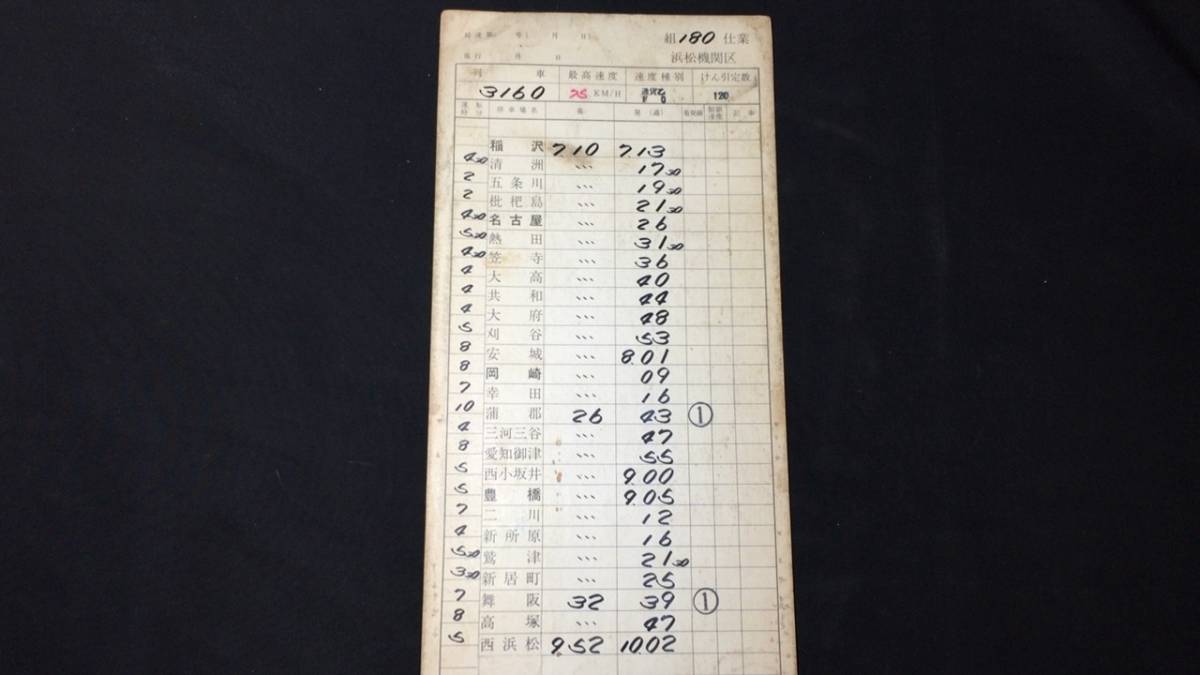 組 180 仕業
浜松機関区
列 車 最高速度 速度種別 けん引定数
3160 75 KM/H 120
運転時分 停車場名 着 発(通) 着発線 制限速度 記事
稲沢 7.10 7.13
4 30 清洲 ... 17 30
2 五条川 ... 19 30
2 枇杷島 ... 21 30
4 30 名古屋 ... 26
5 30 熱田 ... 31 30
4 30 笠寺 ... 36
4 大高 ... 40
4 共和 ... 44
4 大府 ... 48
5 刈谷 ... 53
8 安城 ... 8.01
8 岡崎 ... 09
7 幸田 ... 16
10 蒲郡 26 43 ①
4 三河三谷 ... 47
8 愛知御津 ... 55
5 西小坂井 ... 9.00
5 豊橋 ... 9.05
7 二川 ... 12
4 新所原 ... 16
5 30 鷲津 ... 21 30
3 30 新居町 ... 25
7 舞阪 32 39 ①
8 高塚 ... 47
5 西浜松 9.52 10.02